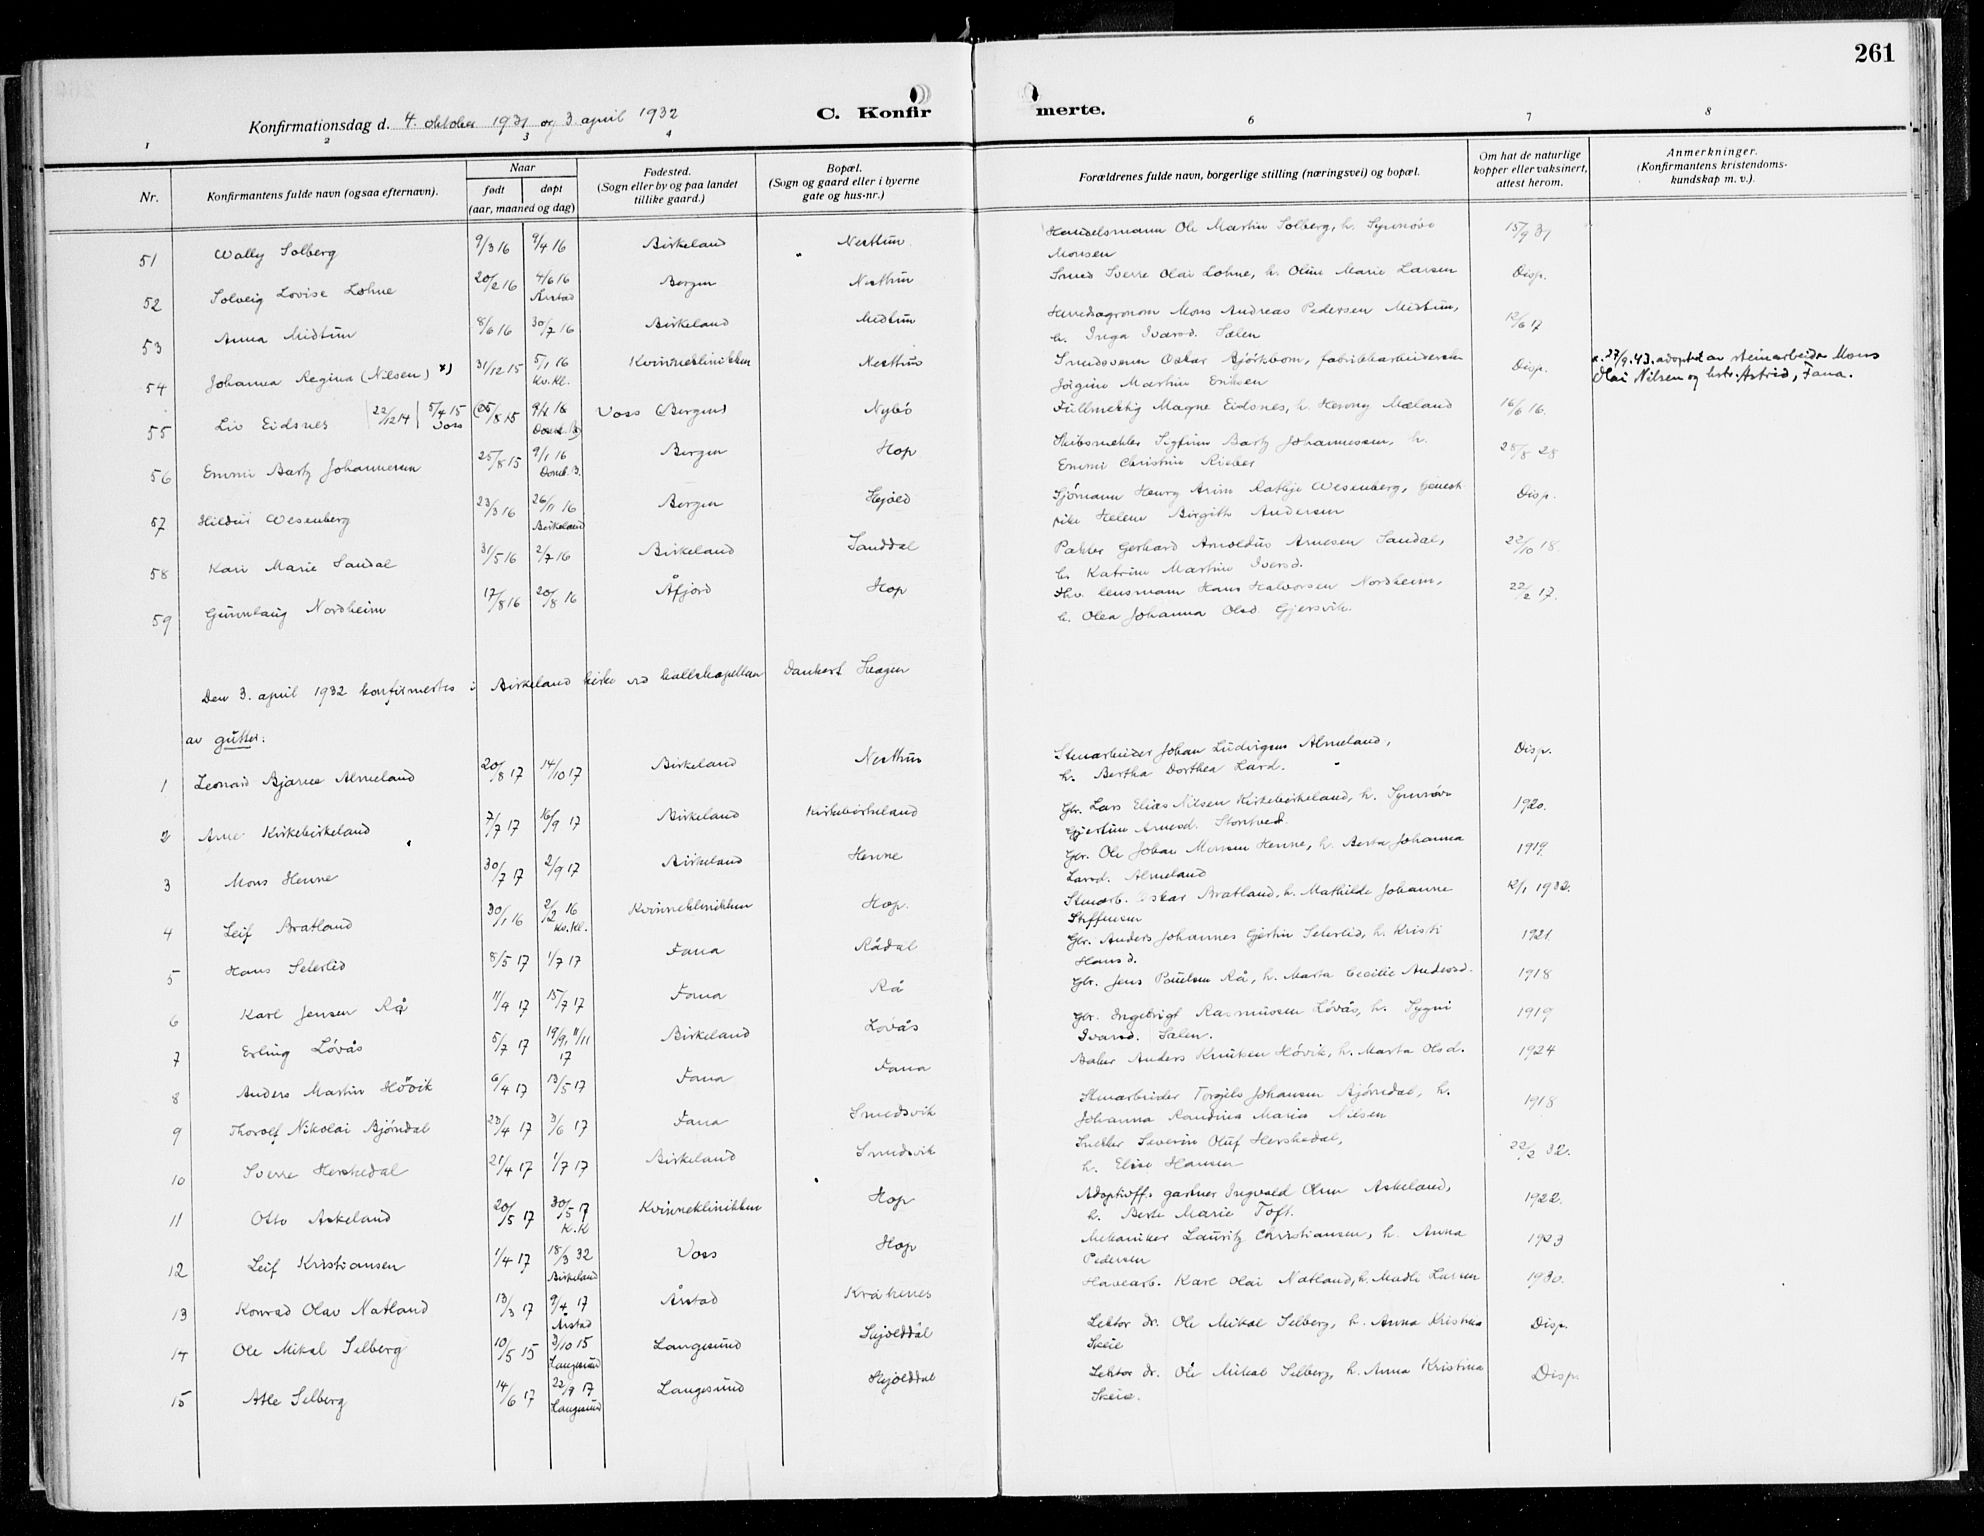 261
C. Konfirmerte.
Konfirmationsdag d. 4. oktober 1931 og 3. april 1932
1 2 3 4 6 7 8
Nr. Konfirmantens fulde navn (ogsaa efternavn). Naar født døpt (aar, maaned og dag) Fødested. (Sogn eller by og paa landet tillike gaard.) Bopæl. (Sogn og gaard eller i byerne gate og hus-nr.) Forældrenes fulde navn, borgerlige stilling (næringsvei) og bopæl. Om hat de naturlige kopper eller vaksinert, attest herom. Anmerkninger. (Konfirmantens kristendomskundskap m. v.).
51 Wally Solberg 9/3 16 9/4 16 Birkeland Nesttun Handelsmann Ole Martin Solberg, h. Synnøve Monsen 15/9 31
52 Solveig Lovise Lohne 20/2 16 4/6 16 Årstad Bergen Nesttun Smed Sverre Olai Lohne, h. Oline Marie Larsen Disp.
53 Anna Midtun 8/6 16 30/7 16 Birkeland Midtun Herredsagronom Mons Andreas Pedersen Midtun, h. Inga Ivarsd. Sælen 12/6 17
54 Johanna Regina (Nilsen) x) 31/12 15 5/1 16 Kv.kl. Kvinneklinikken Nesttun Smedsvenn Oskar Bjørkbom, fabrikkarbeiderske Jörgine Martine Eriksen Disp. x. 27/9.43. adoptert av steinarbeider Mons Olai Nilsen og hstr. Astrid, Fana.
55 Liv Eidsnes 22/12 14 5/4 15 Voss 25/8 15 9/1 16 Domk. B. Voss (Bergen) Nybø Fullmektig Magne Eidsnes, h. Henny Mæland 16/6 16.
56 Emmi Bartz Johannesen 25/8 15 9/1 16 Domk. B. Bergen Hop Skibsmekler Sigfinn Bartz Johannessen, h. Emmi Christine Rieber 28/8 28
57 Hildur Wesenberg 23/3 16 26/11 16 Birkeland Bergen Skjold Sjömann Henry Arim Rathje Wesenberg, tjenestpike Helene Birgithe Andersen Disp.
58 Kari Marie Sandal 31/5 16 2/7 16 Birkeland Sanddal Pakker Gerhard Arnoldus Arnesen Sandal, h. Katrine Martine Iversd. 22/10 18.
59 Gunnlaug Nordheim 17/8 16 20/8 16 Åfjord Hop Fhv. lensmann Hans Halvorsen Nordheim, h. Olea Johanna Olsd. Gjersvik. 22/2 17.
Den 3. april 1932 konfirmertes i Birkeland kirke ved kallskapellan Dankert Skagen
av gutter:
1 Leonard Bjarne Almeland 20/8 17 14/10 17 Birkeland Nesttun Stenarbeider Johan Ludvigsen Almeland, h. Bertha Dorthea Larsd. Disp.
2 Arne Kirkebirkeland 7/7 17 16/9 17 Birkeland Kirkebirkeland Gbr. Lars Elias Nilsen Kirkebirkeland, h. Synnøve Gjertine Arnesd. Storetvedt 1920.
3 Mons Henne 30/7 17 2/9 17 Birkeland Henne Gbr. Ole Johan Monsen Henne, h. Berta Johanna Larsd. Almeland 1919.
4 Leif Bratland 30/1 16 2/2 16 Kv.kl. Kvinneklinikken Hop. Stenarb. Oskar Bratland, h. Mathilde Johanne Steffensen 12/1 1932.
5 Hans Seterlid 8/5 17 1/7 17 Fana Rådal Gbr. Anders Johannes Gjertin Seterlid, h. Kristi Hansd. 1921
6 Karl Jensen Rå 11/4 17 15/7 17 Fana Rå Gbr. Jens Paulsen Rå, h. Marta Cecilie Andersd. 1918
7 Erling Lövås 5/7 17 19/9, 11/11 17 Birkeland Lövås Gbr. Ingebrigt Rasmussen Lövås, h. Sygni Ivarsd. Sælen. 1919
8 Anders Martin Hövik 6/4 17 13/5 17 Fana Fana Baker Anders Knutsen Hövik, h. Marta Olsd. 1924
9 Thorolf Nikolai Bjørndal 23/4 17 3/6 17 Fana Smedsvik Stenarbeider Torgils Johansen Bjørndal, h. Johanna Randina Maria Nilsen 1918
10 Sverre Herskedal 21/4 17 1/7 17 Birkeland Smedsvik Snekker Severin Oluf Herskedal, h. Elise Hansen 22/2 32.
11 Otto Askeland 20/5 17 30/5 17 K.K Kvinneklinikken Hop Adoptivff. gartner Ingvald Olsen Askeland, h. Berte Marie Toft. 1922.
12 Leif Kristiansen 1/4 17 18/3 32 Birkeland Voss Hop Mekaniker Lauritz Christiansen, h. Anna Pedersen 1923
13 Konrad Olav Natland 13/3 17 9/4 17 Årstad Årstad Kråkenes Havearb. Karl Olai Natland, h. Madli Larsen 1930.
14 Ole Mikal Selberg 10/5 15 3/10 15 Langesund Langesund Skjolddal Lektor dr. Ole Mikal Selberg, h. Anna Kristina Skeie Disp.
15 Atle Selberg 14/6 17 22/9 17 Langesund Langesund Skjolddal Lektor dr. Ole Mikal Selberg, h. Anna Kristina Skeie. Disp.